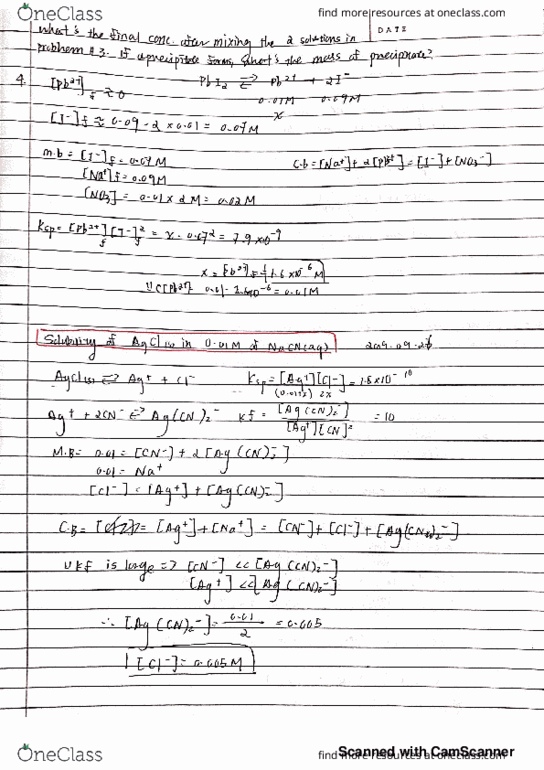 OneClass
find more resources at oneclass.com
DATE
what's the final conc. after mixing the 2 solutions in
problem #3. If a precipitate forms, what's the mass of precipitate?
4. [Pb²⁺]f ≈ 0
PbI₂ ⇌ Pb²⁺ + 2I⁻
0.01M 0.09M
x
[I⁻]f ≈ 0.09 - 2 x 0.01 = 0.07M
m.b = [I⁻]f = 0.07M
C.b = [Na⁺] + 2[Pb²⁺] = [I⁻] + [NO₃⁻]
[Na⁺]f = 0.09M
[NO₃⁻] = 0.01 x 2M = 0.02M
Ksp = [Pb²⁺]f [I⁻]f² = x · 0.07² = 7.9 x 10⁻⁹
x = [Pb²⁺]f = 1.6 x 10⁻⁶ M
0.01 - 1.6x10⁻⁶ = 0.01M
Solubility of AgCl(s) in 0.01M of NaCN(aq)
AgCl(s) ⇌ Ag⁺ + Cl⁻
Ksp = [Ag⁺][Cl⁻] = 1.8 x 10⁻¹⁰
Ag⁺ + 2CN⁻ ⇌ Ag(CN)₂⁻
Kf = [Ag(CN)₂⁻] / [Ag⁺][CN]² = 10
M.B = 0.01 = [CN⁻] + 2[Ag(CN)₂⁻]
0.01 = Na⁺
[Cl⁻] = [Ag⁺] + [Ag(CN)₂⁻]
C.B = [Ag⁺] + [Na⁺] = [CN⁻] + [Cl⁻] + [Ag(CN)₂⁻]
∵ Kf is large => [CN⁻] << [Ag(CN)₂⁻]
[Ag⁺] << [Ag(CN)₂⁻]
∴ [Ag(CN)₂⁻] = 0.01/2 = 0.005
[Cl⁻] = 0.005M
OneClass
find more resources at oneclass.com
Scanned with CamScanner